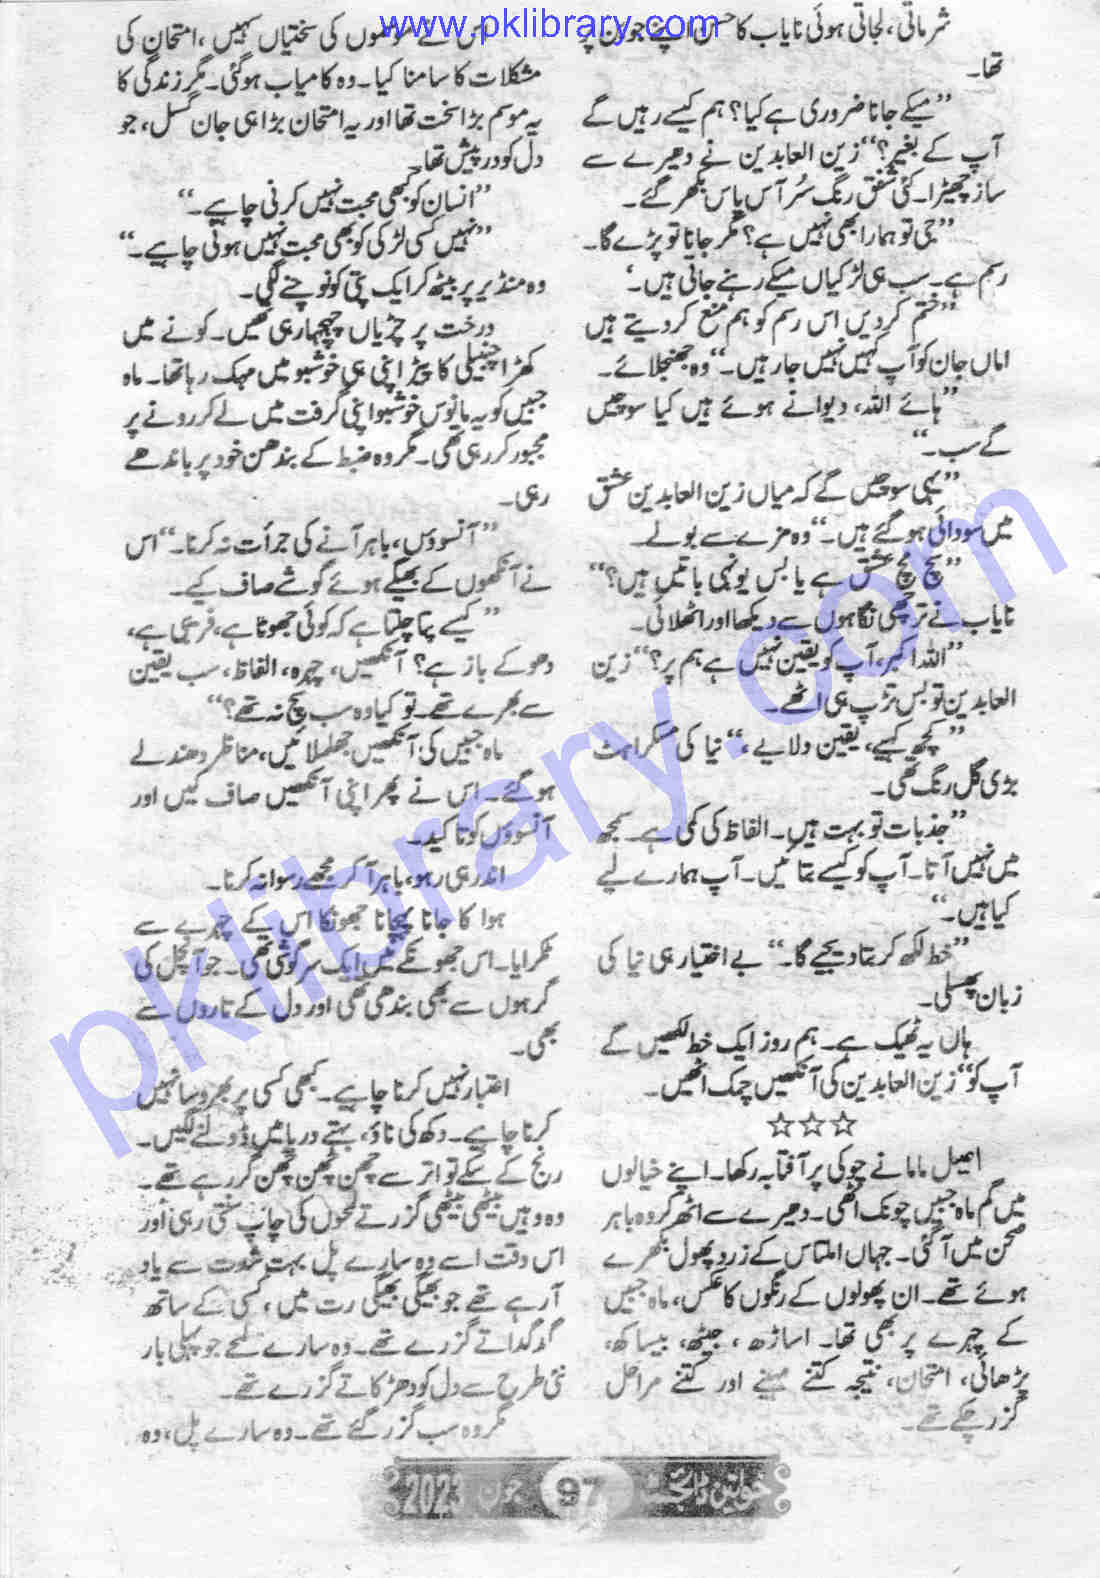 www.pklibrary.com
شرماتی، لجاتی ہوئی نایاب کا حسن اپنے جوبن پر
تھا۔
”میکے جانا ضروری ہے کیا؟ ہم کیسے رہیں گے
آپ کے بغیر؟“ زین العابدین نے دھیرے سے
ساز چھیڑا۔ کئی شفق رنگ سُر آس پاس بکھر گئے۔
”جی تو ہمارا بھی نہیں ہے؟ مگر جانا تو پڑے گا۔
رسم ہے۔ سب ہی لڑکیاں میکے رہنے جاتی ہیں۔‘
”ختم کردیں اس رسم کو ہم منع کردیتے ہیں
اماں جان کو آپ کہیں نہیں جارہیں۔“ وہ جھنجلائے۔
”ہائے اللہ، دیوانے ہوئے ہیں کیا سوچیں
گے سب۔“
”یہی سوچیں گے کہ میاں زین العابدین عشق
میں سودائی ہوگئے ہیں۔“ وہ مزے سے بولے۔
”سچ مچ عشق ہے یا بس یونہی باتیں ہیں؟“
نایاب نے ترچھی نگاہوں سے دیکھا اور اٹھلائی۔
”اللہ اکبر، آپ کو یقین نہیں ہے ہم پر؟“ زین
العابدین تو بس تڑپ ہی اٹھے۔
”کچھ کہیے، یقین دلایے،“ نیا کی مسکراہٹ
بڑی گل رنگ تھی۔
”جذبات تو بہت ہیں۔ الفاظ کی کمی ہے۔ سمجھ
میں نہیں آتا۔ آپ کو کیسے بتائیں۔ آپ ہمارے لیے
کیا ہیں۔“
”خط لکھ کر بتا دیجیے گا۔“ بے اختیار ہی نیا کی
زبان پھسلی۔
ہاں یہ ٹھیک ہے۔ ہم روز ایک خط لکھیں گے
آپ کو“ زین العابدین کی آنکھیں چمک اٹھیں۔
☆☆☆
ماما نے چوکی پر آفتابہ رکھا۔ اپنے خیالوں
میں گم ماہ جبیں چونک اٹھی۔ دھیرے سے اٹھ کر وہ باہر
صحن میں آگئی۔ جہاں املتاس کے زرد پھول بکھرے
ہوئے تھے۔ ان پھولوں کے رنگوں کا عکس، ماہ جبیں
کے چہرے پر بھی تھا۔ اساڑھ، جیٹھ، بیساکھ،
پڑھائی، امتحان، نتیجہ کتنے مہینے اور کتنے مراحل
گزر چکے تھے۔
اس نے موسموں کی سختیاں سہیں، امتحان کی
مشکلات کا سامنا کیا۔ وہ کامیاب ہوگئی۔ مگر زندگی کا
یہ موسم بڑا سخت تھا اور یہ امتحان بڑا ہی جان گسل، جو
دل کو درپیش تھا۔
”انسان کو کبھی محبت نہیں کرنی چاہیے۔“
”نہیں کسی لڑکی کو بھی محبت نہیں ہونی چاہیے۔“
وہ منڈیر پر بیٹھ کر ایک پتی کو نوچنے لگی۔
درخت پر چڑیاں چہچہا رہی تھیں۔ کونے میں
کھڑا چنبیلی کا پیڑ اپنی ہی خوشبو میں مہک رہا تھا۔ ماہ
جبیں کو یہ مانوس خوشبو اپنی گرفت میں لے کر رونے پر
مجبور کر رہی تھی۔ مگر وہ ضبط کے بندھن خود پر باندھے
رہی۔
”آنسوؤں، باہر آنے کی جرأت نہ کرنا۔“ اس
نے آنکھوں کے بھیگے ہوئے گوشے صاف کیے۔
”کیسے پتا چلتا ہے کہ کوئی جھوٹا ہے، فریبی ہے،
دھوکے باز ہے؟ آنکھیں، چہرہ، الفاظ، سب یقین
سے بھرے تھے۔ تو کیا وہ سب سچ نہ تھے؟“
ماہ جبیں کی آنکھیں جھلملائیں، مناظر دھندلے
ہوگئے۔ اس نے پھر اپنی آنکھیں صاف کیں اور
آنسوؤں کو تاکید۔
اندر ہی رہو، باہر آکر مجھے رسوا نہ کرنا۔
ہوا کا جانا پہچانا جھونکا اس کے چہرے سے
ٹکرایا۔ اس جھونکے میں ایک سرگوشی تھی۔ جو آنچل کی
گرہوں سے بھی بندھی تھی اور دل کے تاروں سے
بھی۔
اعتبار نہیں کرنا چاہیے۔ کبھی کسی پر بھروسا نہیں
کرنا چاہیے۔ دکھ کی ناؤ، بہتے دریا میں ڈولنے لگیں۔
رنج کے سکے تواتر سے چھن چھن چھن گر رہے تھے۔
وہ وہیں بیٹھی بیٹھی گزرتے لمحوں کی چاپ سنتی رہی اور
اس وقت اسے وہ سارے پل بہت شدت سے یاد
آرہے تھے جو بھیگی بھیگی رت میں، کسی کے ساتھ
گدگداتے گزرے تھے۔ وہ سارے لمحے جو پہلی بار
نئی طرح سے دل کو دھڑکاتے گزرے تھے۔
مگر وہ سب گزر گئے تھے۔ وہ سارے پل، وہ
خواتین ڈائجسٹ 97 جون 2023
pklibrary.com